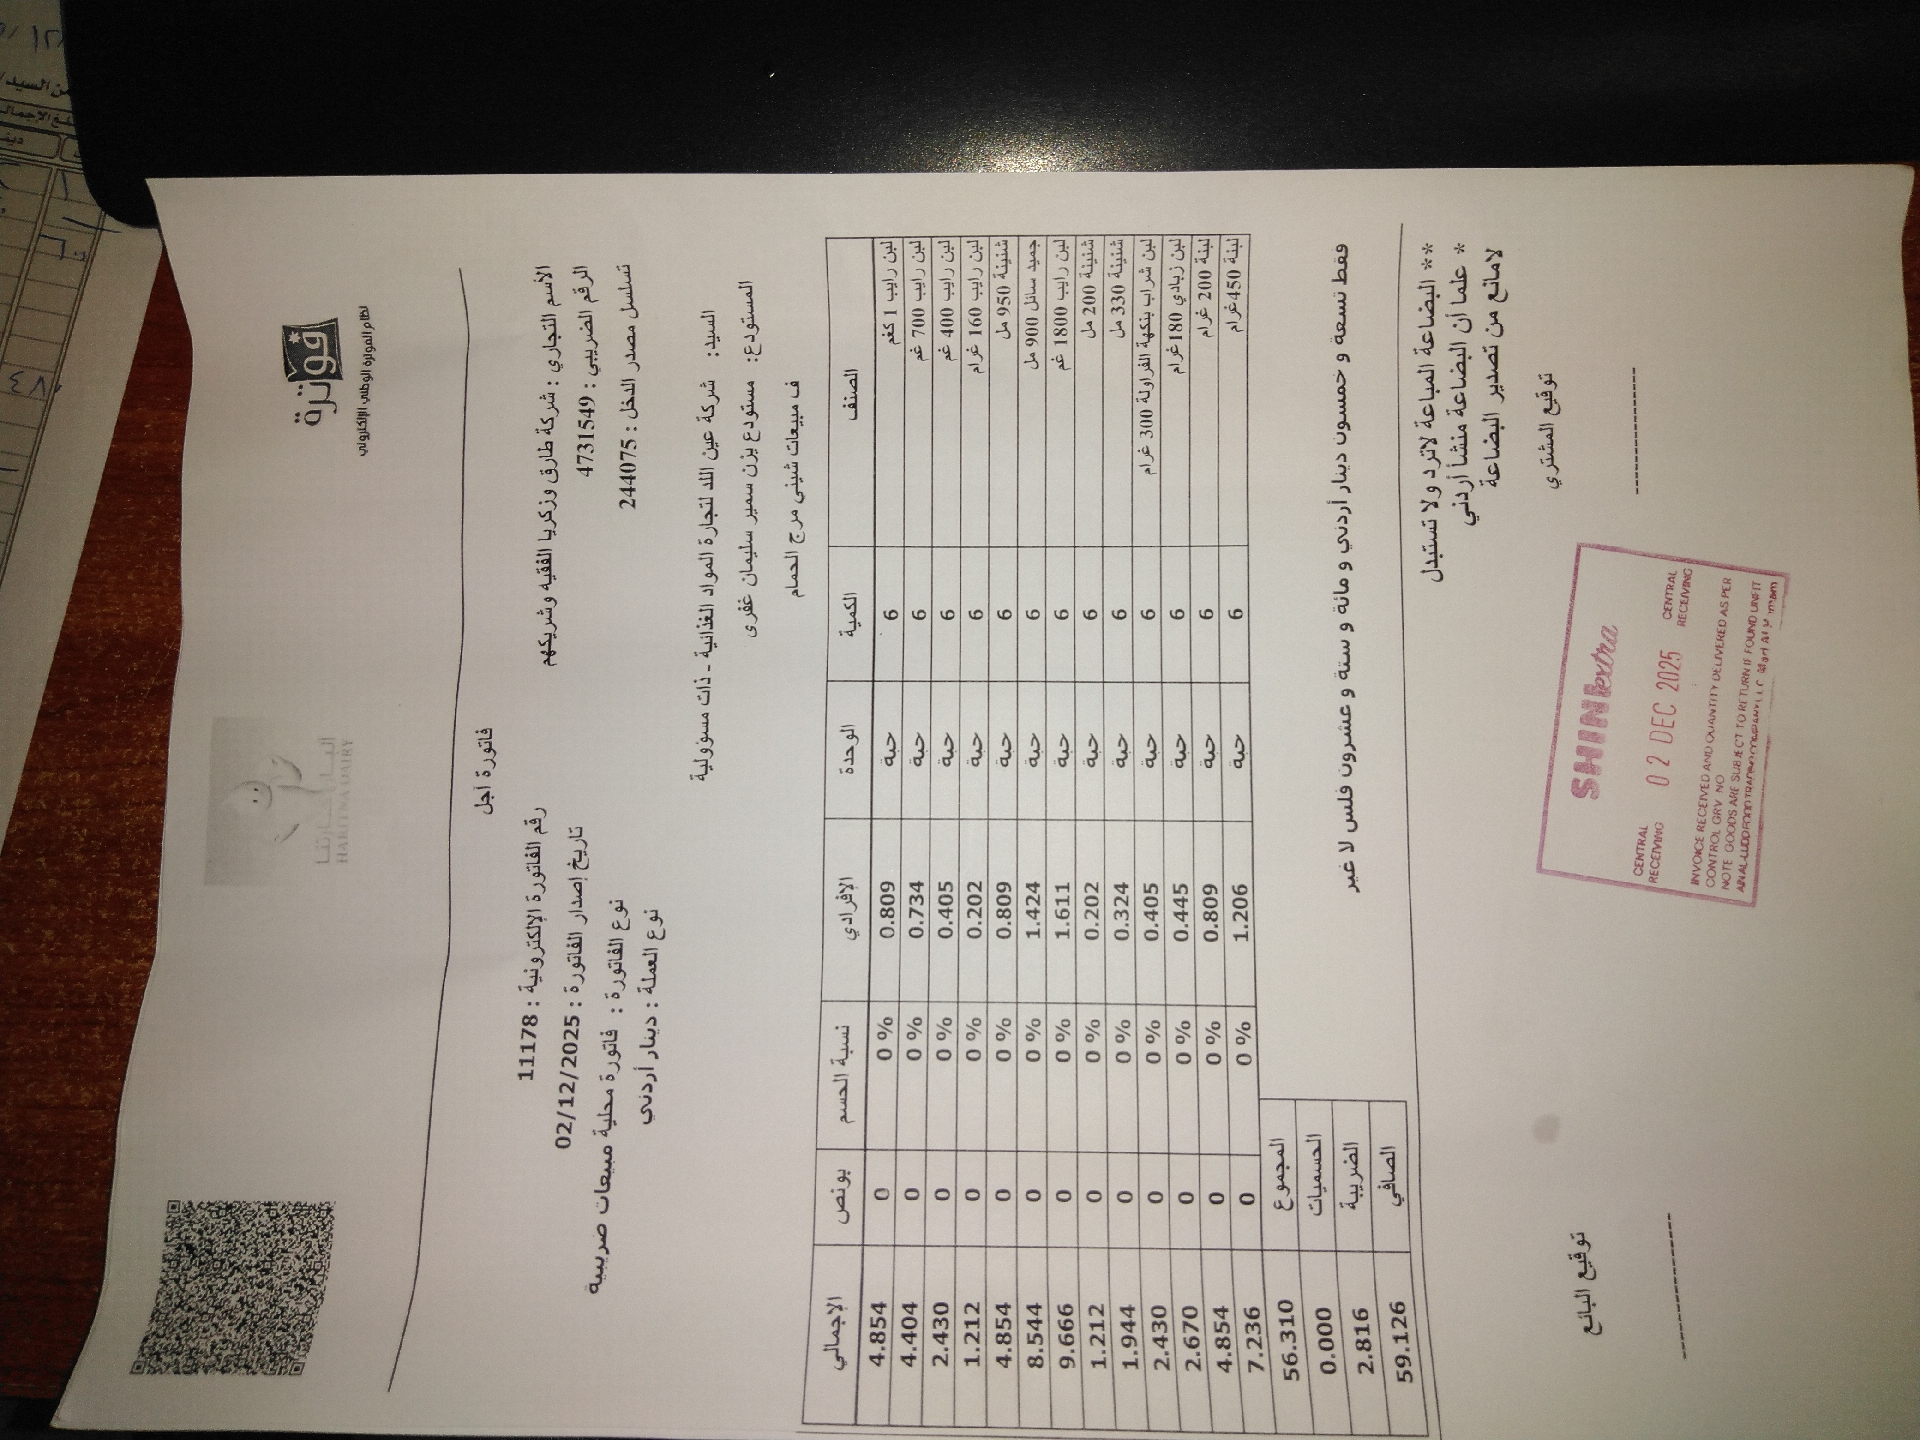 فوترة
نظام الفوترة الوطني الإلكتروني
البان حارتنا
HARITNA DAIRY
فاتورة آجل
الأسم التجاري : شركة طارق وزكريا الفقيه وشريكهم
رقم الفاتورة الإلكترونية : 11178
الرقم الضريبي : 4731549
تاريخ إصدار الفاتورة : 02/12/2025
تسلسل مصدر الدخل : 244075
نوع الفاتورة : فاتورة محلية مبيعات ضريبية
نوع العملة : دينار أردني
السيد: شركة عين اللد لتجارة المواد الغذائية - ذات مسؤولية
المستودع: مستودع يزن سمير سليمان غفرى
ف مبيعات شيني مرج الحمام
الصنف الكمية الوحدة الإفرادي نسبة الحسم بونص الإجمالي
لبن رايب 1 كغم 6 حبة 0.809 0 % 0 4.854
لبن رايب 700 غم 6 حبة 0.734 0 % 0 4.404
لبن رايب 400 غم 6 حبة 0.405 0 % 0 2.430
لبن رايب 160 غرام 6 حبة 0.202 0 % 0 1.212
شنينة 950 مل 6 حبة 0.809 0 % 0 4.854
جميد سائل 900 مل 6 حبة 1.424 0 % 0 8.544
لبن رايب 1800 غم 6 حبة 1.611 0 % 0 9.666
شنينة 200 مل 6 حبة 0.202 0 % 0 1.212
شنينة 330 مل 6 حبة 0.324 0 % 0 1.944
لبن شراب بنكهة الفراولة 300 غرام 6 حبة 0.405 0 % 0 2.430
لبن زبادي 180 غرام 6 حبة 0.445 0 % 0 2.670
لبنة 200 غرام 6 حبة 0.809 0 % 0 4.854
لبنة 450غرام 6 حبة 1.206 0 % 0 7.236
المجموع 56.310
الحسميات 0.000
الضريبة 2.816
الصافي 59.126
فقط تسعة و خمسون دينار أردني و مائة و ستة و عشرون فلس لا غير
** البضاعة المباعة لاترد ولا تستبدل
* علما أن البضاعة منشأ أردني
لامانع من تصدير البضاعة
توقيع المشتري
توقيع البائع
SHINI extra
CENTRAL RECEIVING 02 DEC 2025 CENTRAL RECEIVING
INVOICE RECEIVED AND QUANTITY DELIVERED AS PER
CONTROL GRV. NO
NOTE GOODS ARE SUBJECT TO RETURN IF FOUND UNFIT
من السيد
دينار